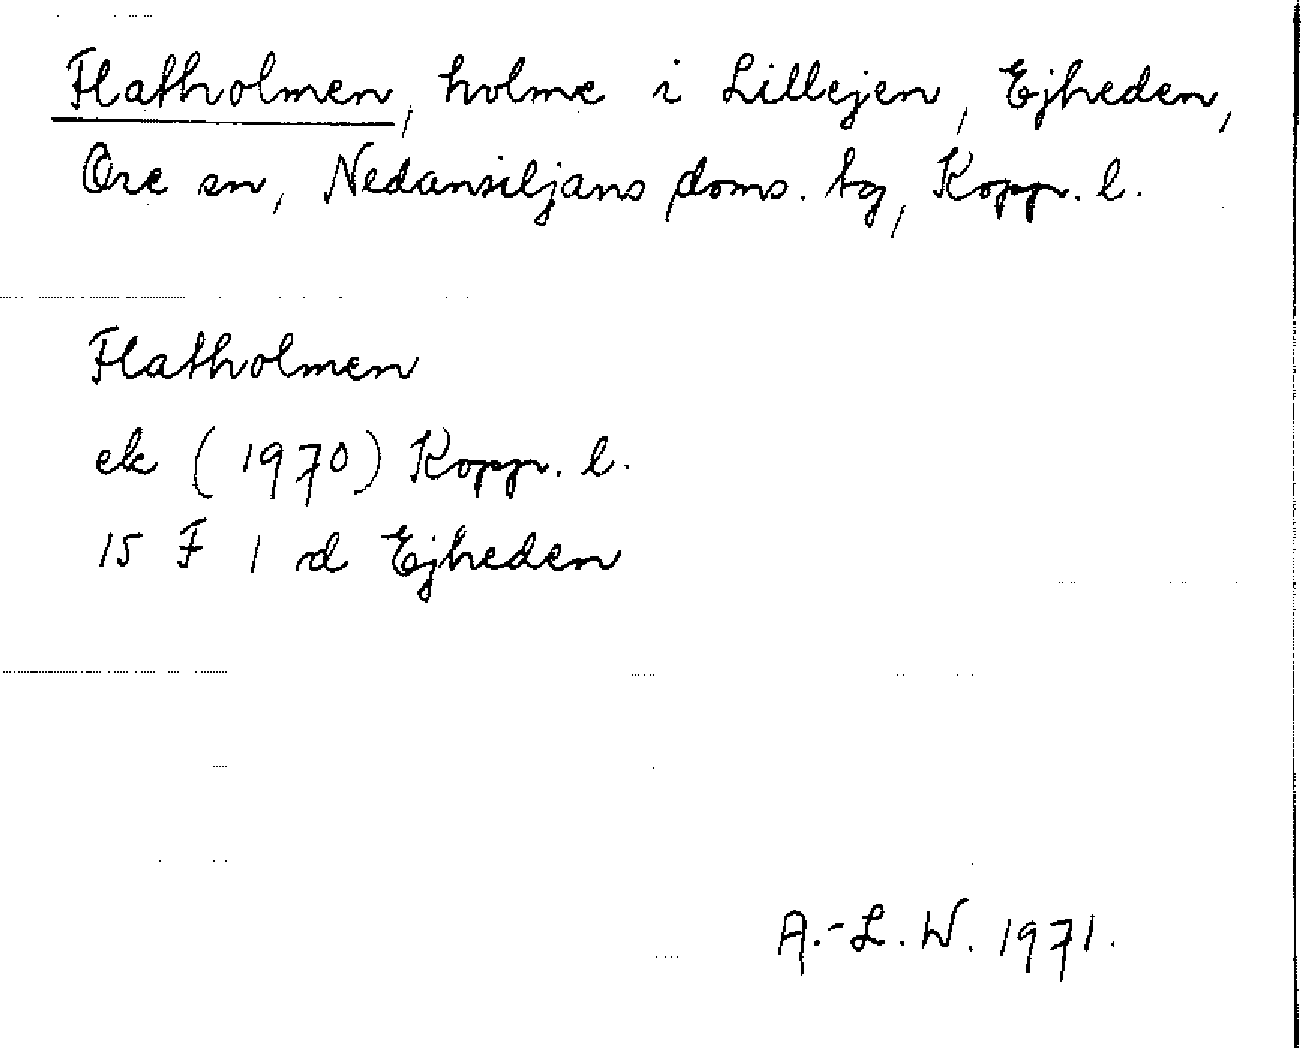 Flatholmen, holme i Lillejen, Ejheden,
Ore sn, Nedansiljans doms. tg, Kopp. l.
Flatholmen
ek (1970) Kopp. l.
15 F 1 d Ejheden
A.-L. W. 1971.